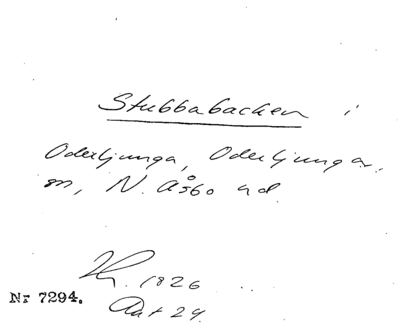 Stubbabacken i
Oderljunga, Oderljungar.
sn, N. Åsbo hd.
1826
Nr 7294.
Akt 24